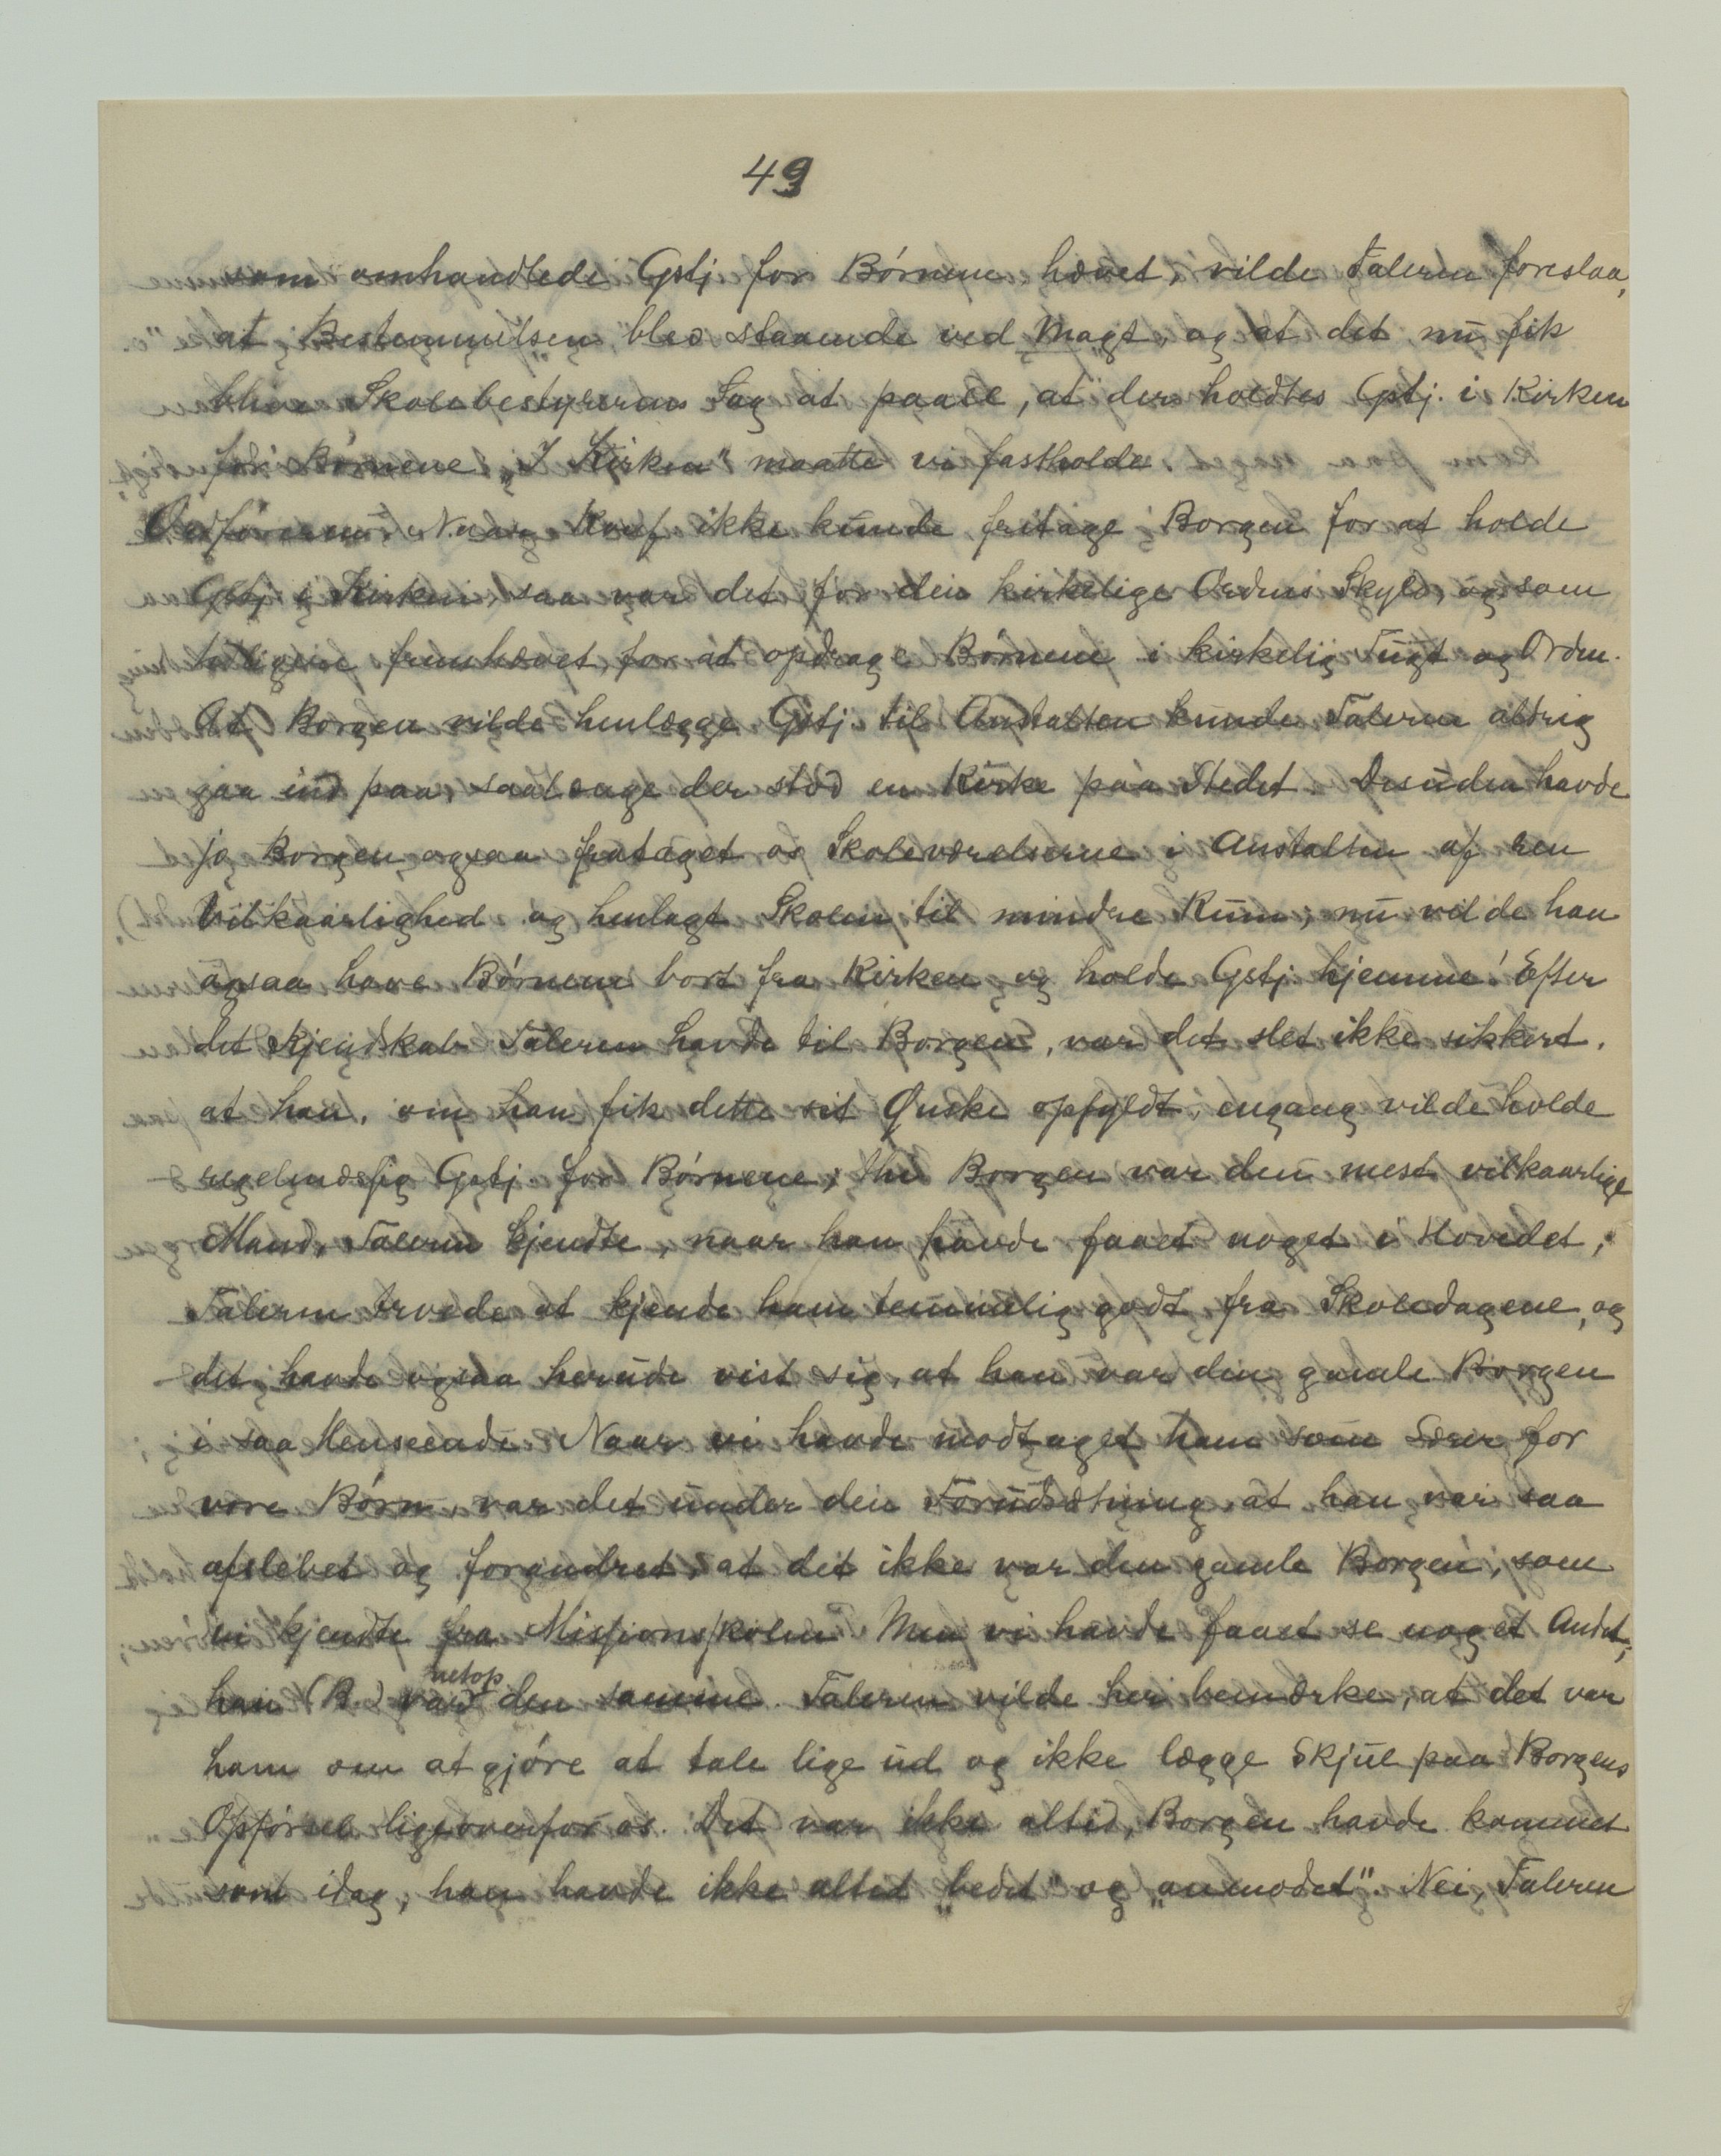 49
som omhandlede Gstj for Börnene hævet, vilde Taleren foreslaa,
at Bestemmelsen blev staaende ved Magt, og at det nu fik
blive Skolebestyrerens Sag at paase, at der holdtes Gstj. i Kirken
for Börnene. „I Kirken" maatte vi fastholde.
Ordföreren: Naar Konf ikke kunde fritage Borgen for at holde
Gstj i Kirken, saa var det for den kirkelige Ordens Skyld, og som
tidligere fremhævet, for at opdrage Börnene i kirkelig Tugt og Orden.
At Borgen vilde henlægge Gstj. til Anstalten kunde Taleren aldrig
gaa ind paa, saalænge der stod en Kirke paa Stedet. Desuden havde
jo Borgen ogsaa frataget os Skoleværelserne i Anstalten af ren
Vilkaarlighed og henlagt Skolen til mindre Rum; nu vilde han
ogsaa have Börnene bort fra Kirken og holde Gstj. hjemme! Efter
det Kjendskab Taleren havde til Borgen, var det slet ikke sikkert,
at han, om han fik dette sit Ønske opfyldt, engang vilde holde
regelmæssig Gstj. for Börnene; thi Borgen var den mest vilkaarlige
Mand, Taleren kjendte, naar han havde faaet noget i Hovedet;
Taleren trvede at kjende ham temmelig godt fra Skoledagene, og
det havde ogsaa herude vist sig, at han var den gamle Borgen
i saa Henseende. Naar vi havde modtaget ham som Lærer for
vore Börn, var det under den Forudsætning at han var saa
afslebet og forandret, at det ikke var den gamle Borgen, som
vi kjendte fra Missionsskolen. Men vi havde faaet se noget Andet;
han (B.) var netop den samme. Taleren vilde her bemærke, at det var
ham om at gjöre at tale lige ud og ikke lægge Skjul paa Borgens
Opförsel ligeoverfor os. Det var ikke altid, Borgen havde kommet
som idag; han havde ikke altid „bedet" og „anmodet". Nei, Taleren